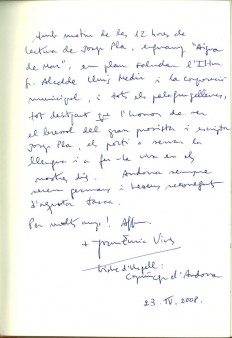 Amb motiu de les 12 hores de
lectura de Josep Pla, enguany "Aigua
de Mar", em plau saludar l'Il·lm
S. Alcalde Lluís Medir i la corporació
municipal, i tots els palafrugellencs,
tot desitjant que l'honor de ser
el bressol del gran prosista i escriptor
Josep Pla, el porti a servar la
llengua i a fer-la viva en els
nostres dies. Andorra sempre
serem germans i
d'aquesta tasca.
Per molts anys!
+ Joan Enric Vives
bisbe d'Urgell i
Copríncep d'Andorra
23.IV.2008.